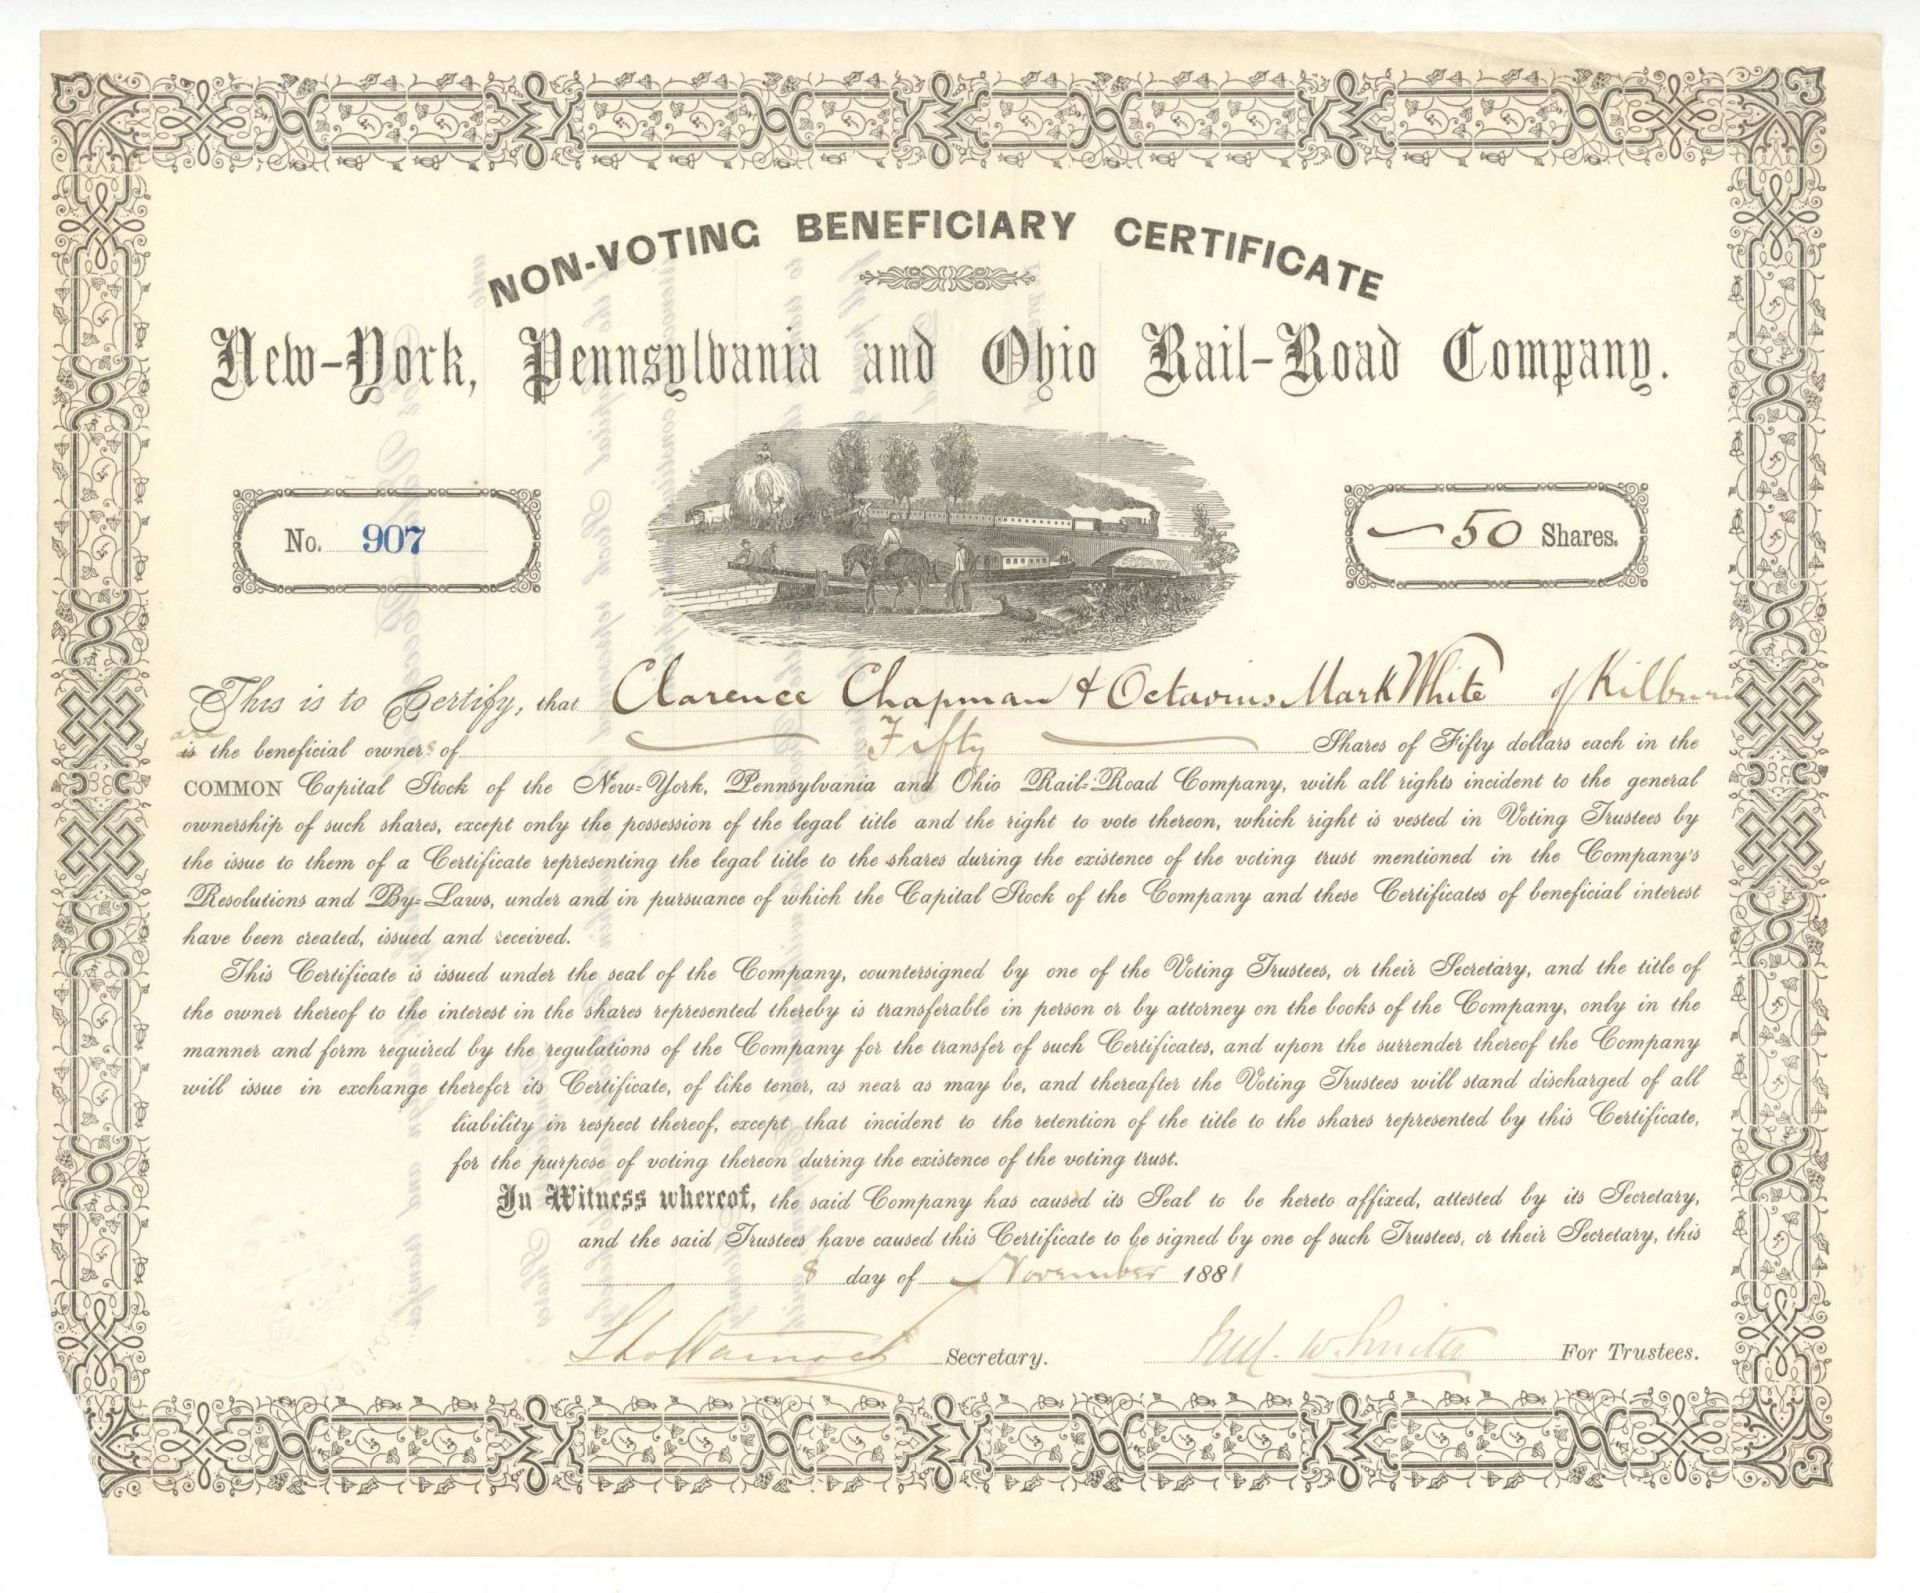 NON-VOTING BENEFICIARY CERTIFICATE
New-York, Pennsylvania and Ohio Rail-Road Company.
No. 907
50 Shares.
This is to Certify, that Clarence Chapman & Octavius Mark White of Kilburn
are
is the beneficial owners of Fifty Shares of Fifty dollars each in the
COMMON Capital Stock of the New-York, Pennsylvania and Ohio Rail-Road Company, with all rights incident to the general
ownership of such shares, except only the possession of the legal title and the right to vote thereon, which right is vested in Voting Trustees by
the issue to them of a Certificate representing the legal title to the shares during the existence of the voting trust mentioned in the Company's
Resolutions and By-Laws, under and in pursuance of which the Capital Stock of the Company and these Certificates of beneficial interest
have been created, issued and received.
This Certificate is issued under the seal of the Company, countersigned by one of the Voting Trustees, or their Secretary, and the title of
the owner thereof to the interest in the shares represented thereby is transferable in person or by attorney on the books of the Company, only in the
manner and form required by the regulations of the Company for the transfer of such Certificates, and upon the surrender thereof the Company
will issue in exchange therefor its Certificate, of like tenor, as near as may be, and thereafter the Voting Trustees will stand discharged of all
liability in respect thereof, except that incident to the retention of the title to the shares represented by this Certificate,
for the purpose of voting thereon during the existence of the voting trust.
In Witness whereof, the said Company has caused its Seal to be hereto affixed, attested by its Secretary,
and the said Trustees have caused this Certificate to be signed by one of such Trustees, or their Secretary, this
8 day of November 1881
Secretary.
For Trustees.